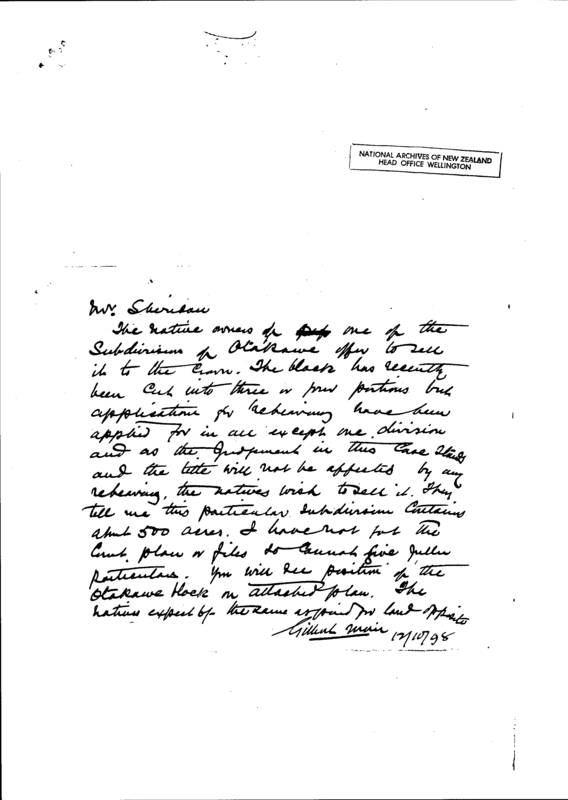 NATIONAL ARCHIVES OF NEW ZEALAND
HEAD OFFICE WELLINGTON
Mr. Sheridan
The native owners of one of the
Subdivisions of Otakawe offer to sell
it to the Crown. The block has recently
been cut into three or four portions but
applications for rehearing have been
applied for in all except one division
and as the Judgement in this Case Stands
and the title will not be affected by any
rehearing, the natives wish to sell it. They
tell me this particular Subdivision Contains
about 500 acres. I have not got the
Court plan or files so Cannot give fuller
particulars. You will see position of the
Otakawe block on attached plan. The
natives expect the same as paid for land opposite
Gilbert Mair 12/10/98